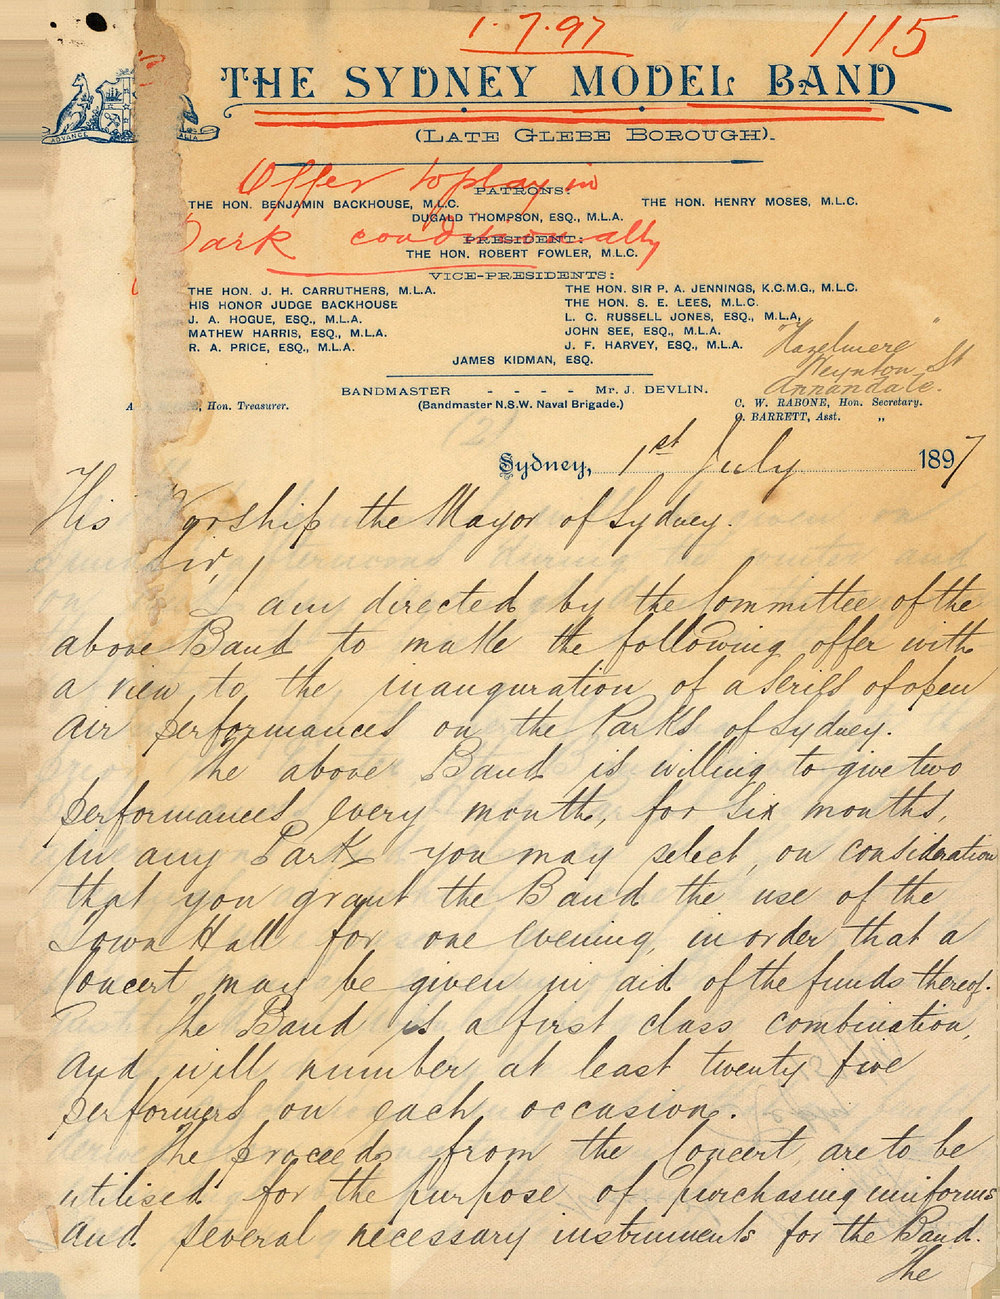 1.7.97
1115
THE SYDNEY MODEL BAND
(LATE GLEBE BOROUGH).
ADVANCE
Offer to play in
PATRONS:
THE HON. BENJAMIN BACKHOUSE, M.L.C. THE HON. HENRY MOSES, M.L.C.
DUGALD THOMPSON, ESQ., M.L.A.
Park conditionally
PRESIDENT:
THE HON. ROBERT FOWLER, M.L.C.
VICE-PRESIDENTS:
THE HON. J. H. CARRUTHERS, M.L.A. THE HON. SIR P. A. JENNINGS, K.C.M.G., M.L.C.
HIS HONOR JUDGE BACKHOUSE THE HON. S. E. LEES, M.L.C.
J. A. HOGUE, ESQ., M.L.A. L. C. RUSSELL JONES, ESQ., M.L.A.
MATHEW HARRIS, ESQ., M.L.A. JOHN SEE, ESQ., M.L.A.
R. A. PRICE, ESQ., M.L.A. J. F. HARVEY, ESQ., M.L.A.
JAMES KIDMAN, ESQ.
"Hazelmere"
Weynton St
Annandale.
BANDMASTER - - - - Mr. J. DEVLIN.
Hon. Treasurer. (Bandmaster N.S.W. Naval Brigade.) C. W. RABONE, Hon. Secretary.
G. BARRETT, Asst. „
Sydney, 1st July 1897
His Worship the Mayor of Sydney.
Sir,
I am directed by the Committee of the
above Band to make the following offer with
a view to the inauguration of a series of open
air performances on the Parks of Sydney.
The above Band is willing to give two
performances every month, for six months,
in any Park you may select, on consideration
that you grant the Band the use of the
Town Hall for one evening, in order that a
Concert may be given in aid of the funds thereof.
The Band is a first class combination,
and will number at least twenty five
performers on each occasion.
The proceeds from the Concert, are to be
utilised for the purpose of purchasing uniforms
and several necessary instruments for the Band.
The